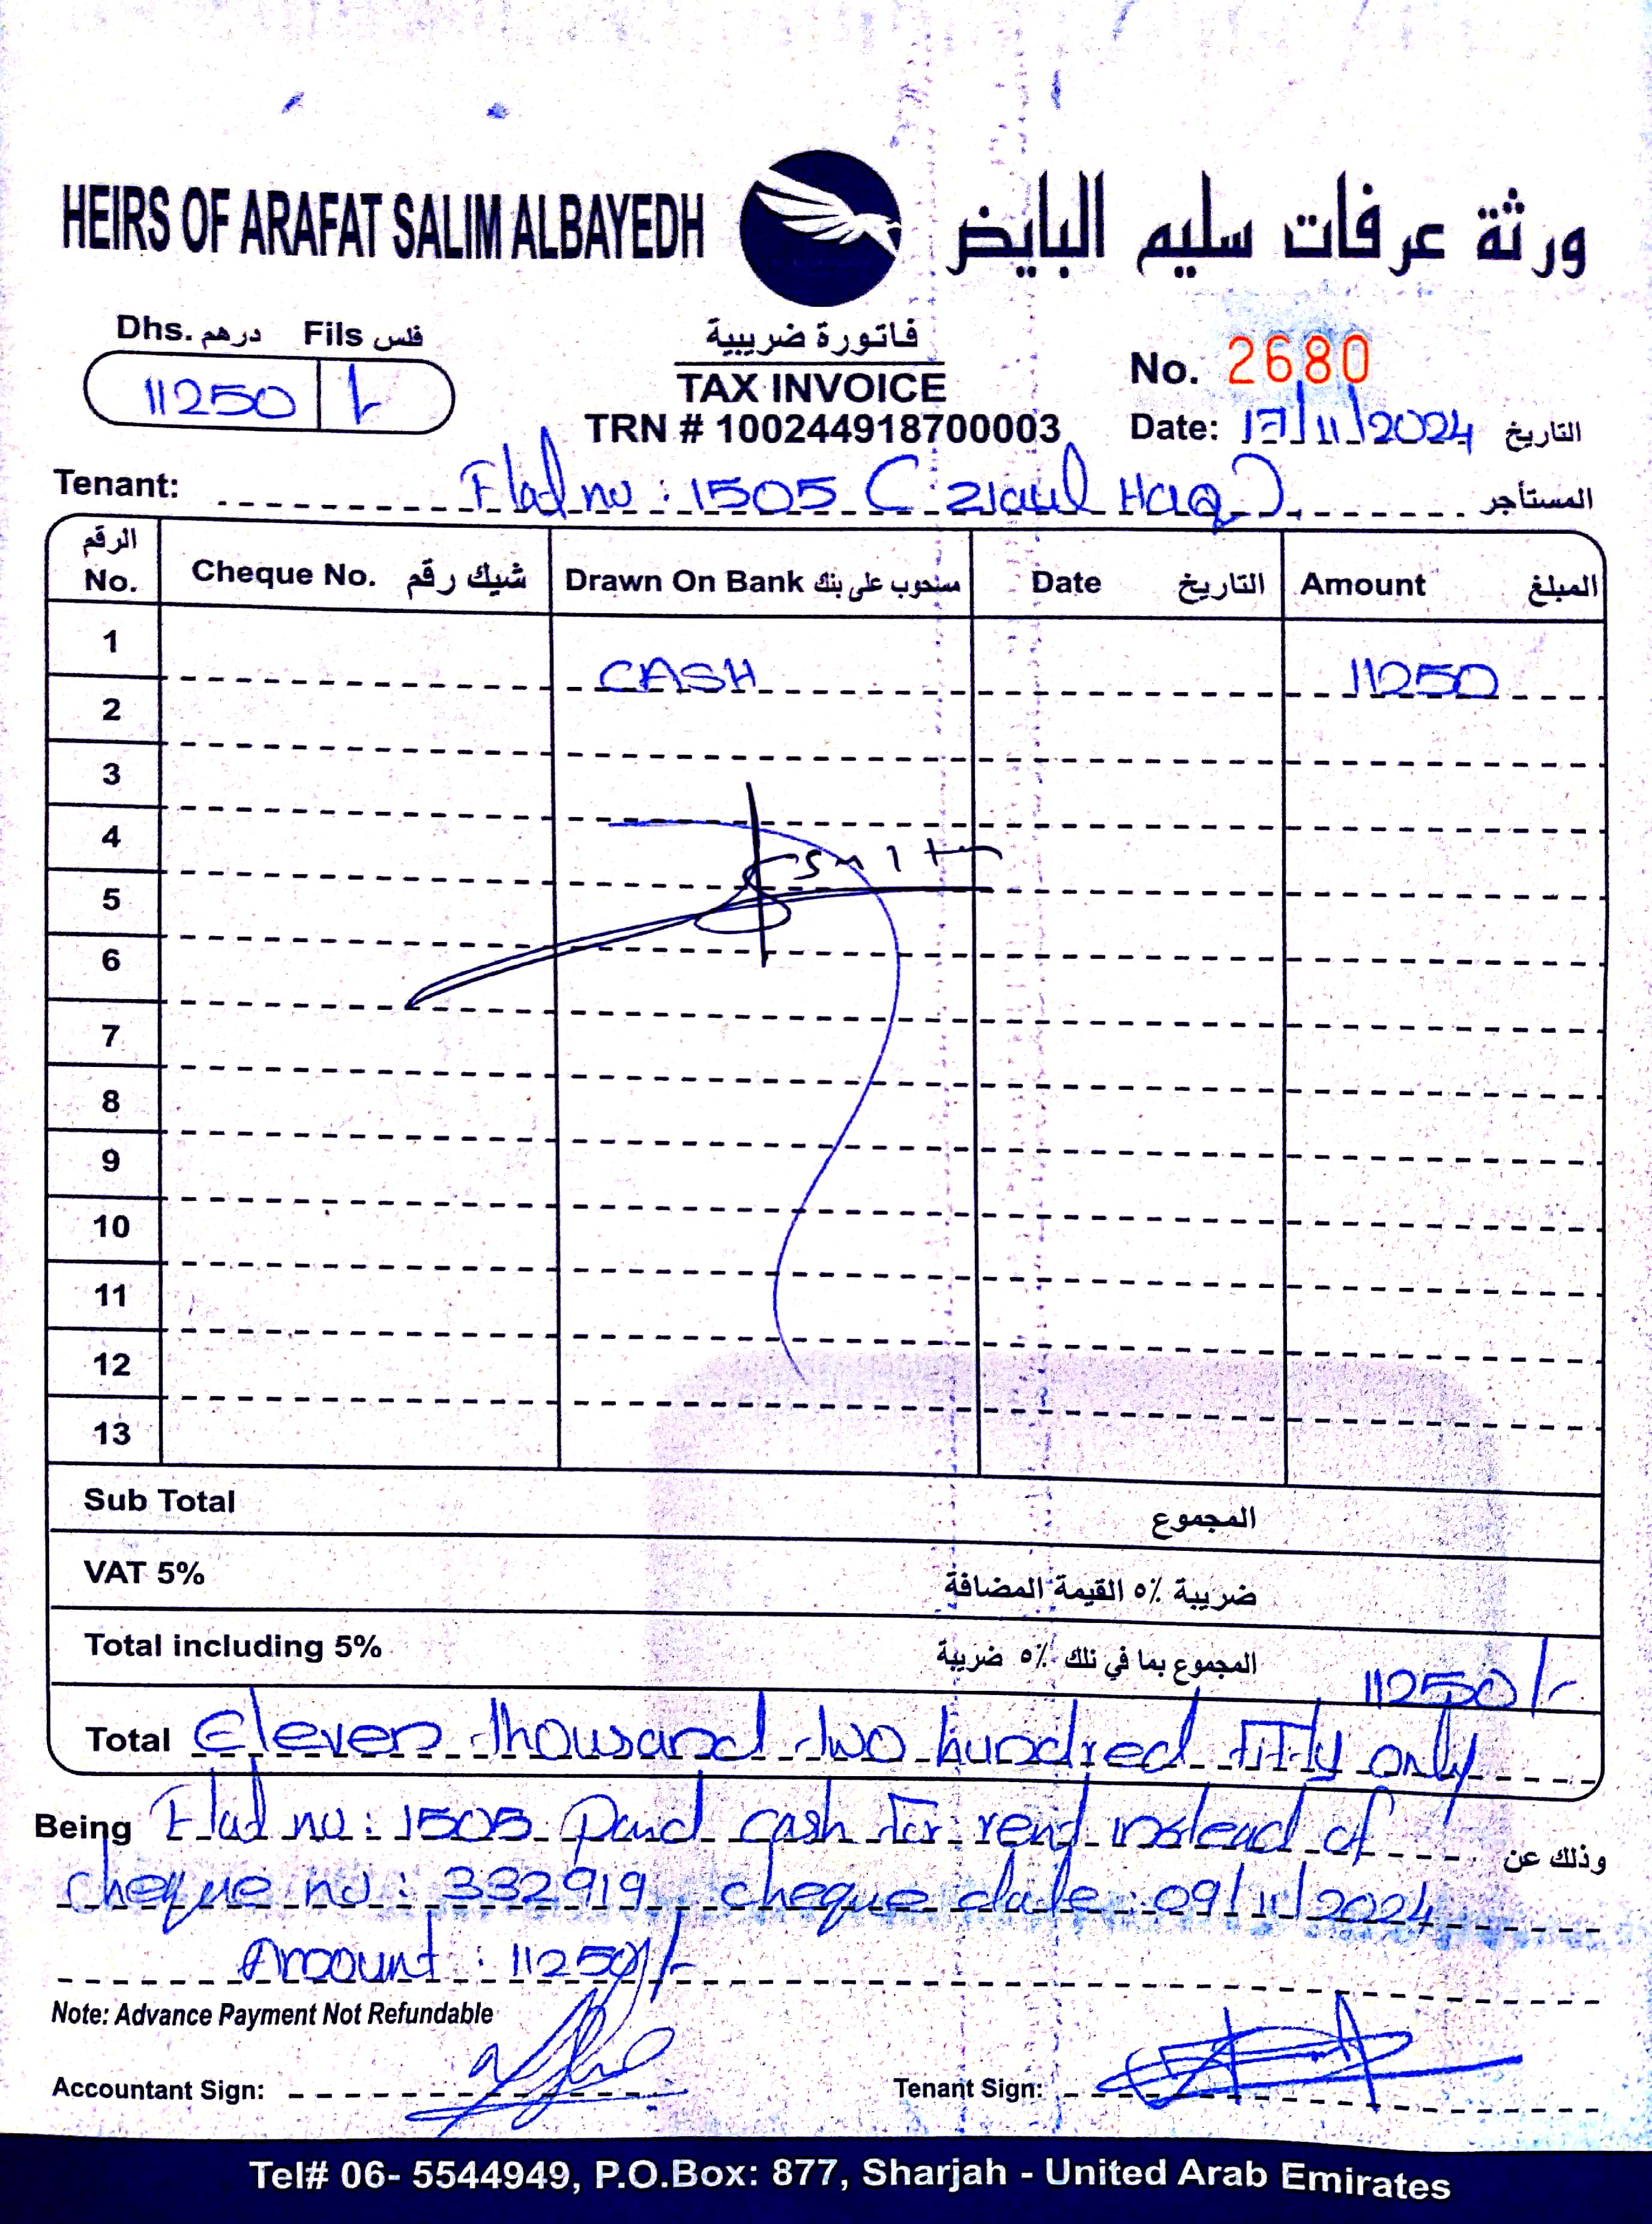 HEIRS OF ARAFAT SALIM ALBAYEDH ورثة عرفات سليم البايض
Dhs. درهم Fils فلس
11250 /-
فاتورة ضريبية
TAX INVOICE
TRN # 100244918700003
No. 2680
Date: 17/11/2024 التاريخ
Tenant: Flat no : 1505 ( Ziaul Haq ). المستأجر
الرقم No. Cheque No. شيك رقم Drawn On Bank مسحوب على بنك Date التاريخ Amount المبلغ
1 CASH 11250
2
3
4
5
6
7
8
9
10
11
12
13
Sub Total المجموع
VAT 5% ضريبة ٥٪ القيمة المضافة
Total including 5% المجموع بما في تلك ٥٪ ضريبة 11250/-
Total Eleven thousand two hundred fifty only
Being Flat no : 1505 Paid cash for rent instead of وذلك عن
cheque no : 332919 cheque date : 09/11/2024
Amount : 11250/-
Note: Advance Payment Not Refundable
Accountant Sign: Tenant Sign:
Tel# 06- 5544949, P.O.Box: 877, Sharjah - United Arab Emirates